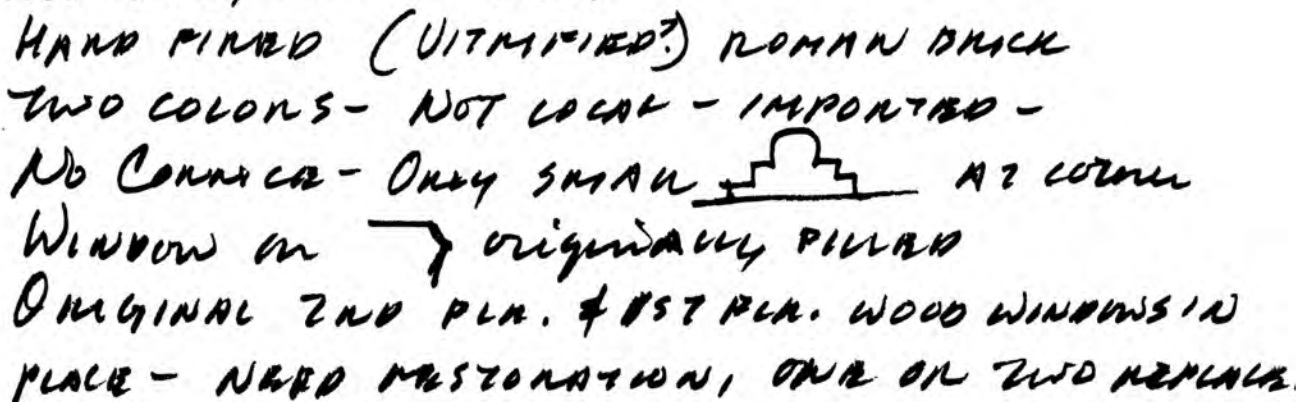 HAND FIRED (VITRIFIED?) ROMAN BRICK
TWO COLORS - NOT LOCAL - IMPORTED -
No CORNICE - ONLY SMALL AT corner
WINDOW on originally FILLED
ORIGINAL 2ND FLR. & 1ST FLR. WOOD WINDOWS IN
PLACE - NEED RESTORATION, ONE OR TWO REPLACE.